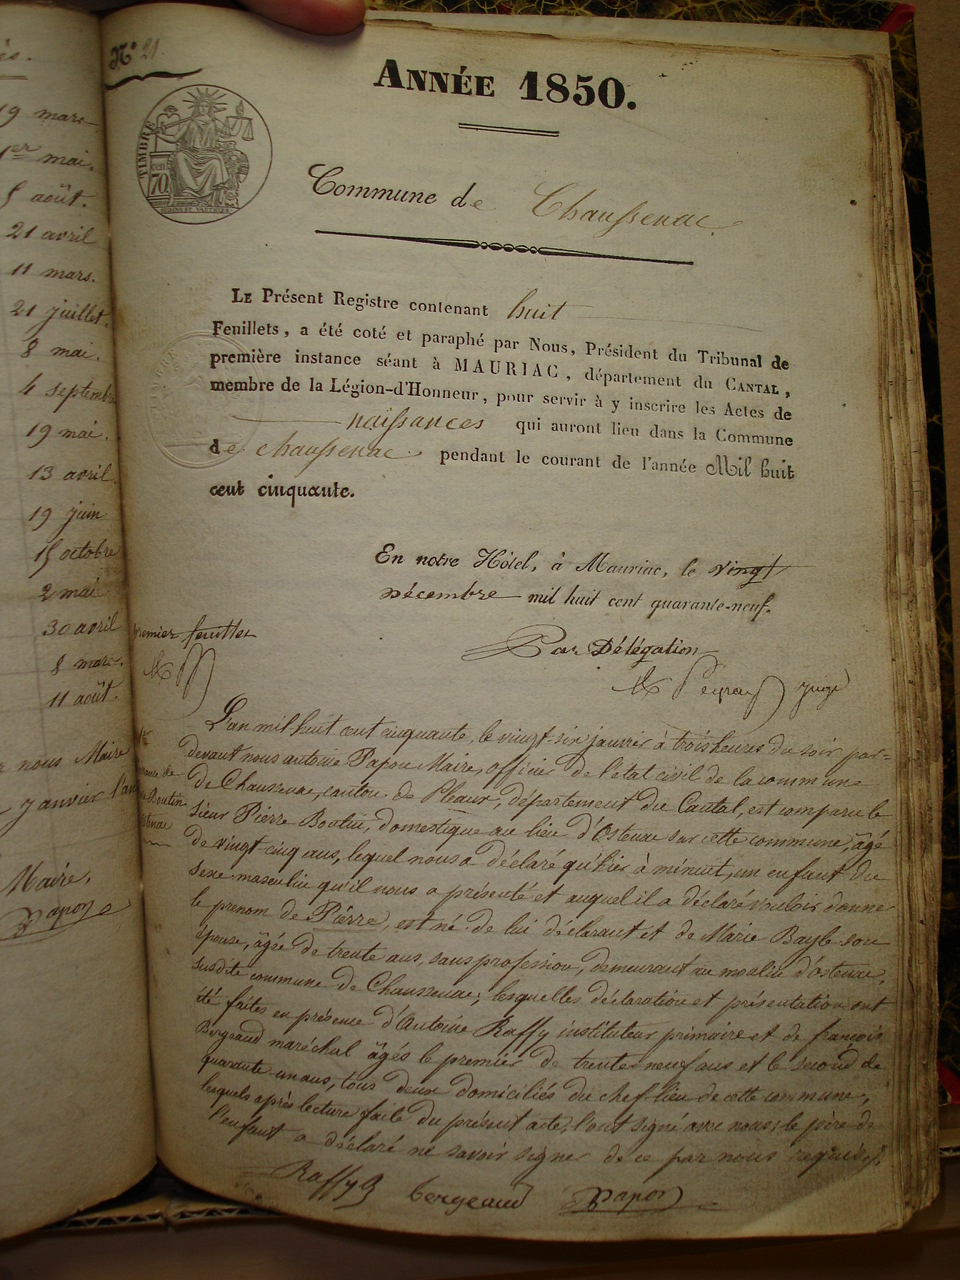 és.
19 mars
1er mai.
5 août.
21 avril
11 mars.
21 juillet.
8 mai.
4 septembre
19 mai.
13 avril.
19 juin
15 octobre
2 mai
30 avril
8 mars.
11 août.
nous Maire
janvier
Maire,
Papon
N° 21.
TIMBRE
70
ANNÉE 1850.
Commune de Chaussenac
LE Présent Registre contenant huit
Feuillets, a été coté et paraphé par Nous, Président du Tribunal de
première instance séant à MAURIAC, département du CANTAL,
membre de la Légion-d'Honneur, pour servir à y inscrire les Actes de
naissances qui auront lieu dans la Commune
de chaussenac pendant le courant de l'année Mil huit
cent cinquante.
En notre Hôtel, à Mauriac, le vingt
Décembre mil huit cent quarante-neuf.
Par Délégation
juge
premier feuillet
L'an mil huit cent cinquante, le vingt six janvier à trois heures du soir par-
devant nous antoine Papon Maire, officier de l'état civil de la commune
de Chaussenac, canton de Pleaux, département du Cantal, est comparu le
Sieur Pierre Boutin, domestique au lieu d'Ostenac sur cette commune, âgé
de vingt-cinq ans, lequel nous a déclaré qu'hier à minuit, un enfant du
Sexe masculin qu'il nous a présenté et auquel il a déclaré vouloir donner
le prenom de Pierre, est né de lui déclarant et de Marie Bayle son
épouse, âgée de trente ans, sans profession, demeurant au moulin d'ostenac,
susdite commune de Chaussenac; lesquelles déclaration et présentation ont
été faites en présence d'Antoine Raffy instituteur primaire et de françois
Bergeaud maréchal âgés le premier de trente neuf ans et le second de
quarante un ans, tous deux domiciliés du chef lieu de cette commune,
lesquels après lecture faite du présent acte, l'ont signé avec nous; le père de
l'enfant a déclaré ne savoir signer de ce par nous requis.
Raffy bergeaud Papon